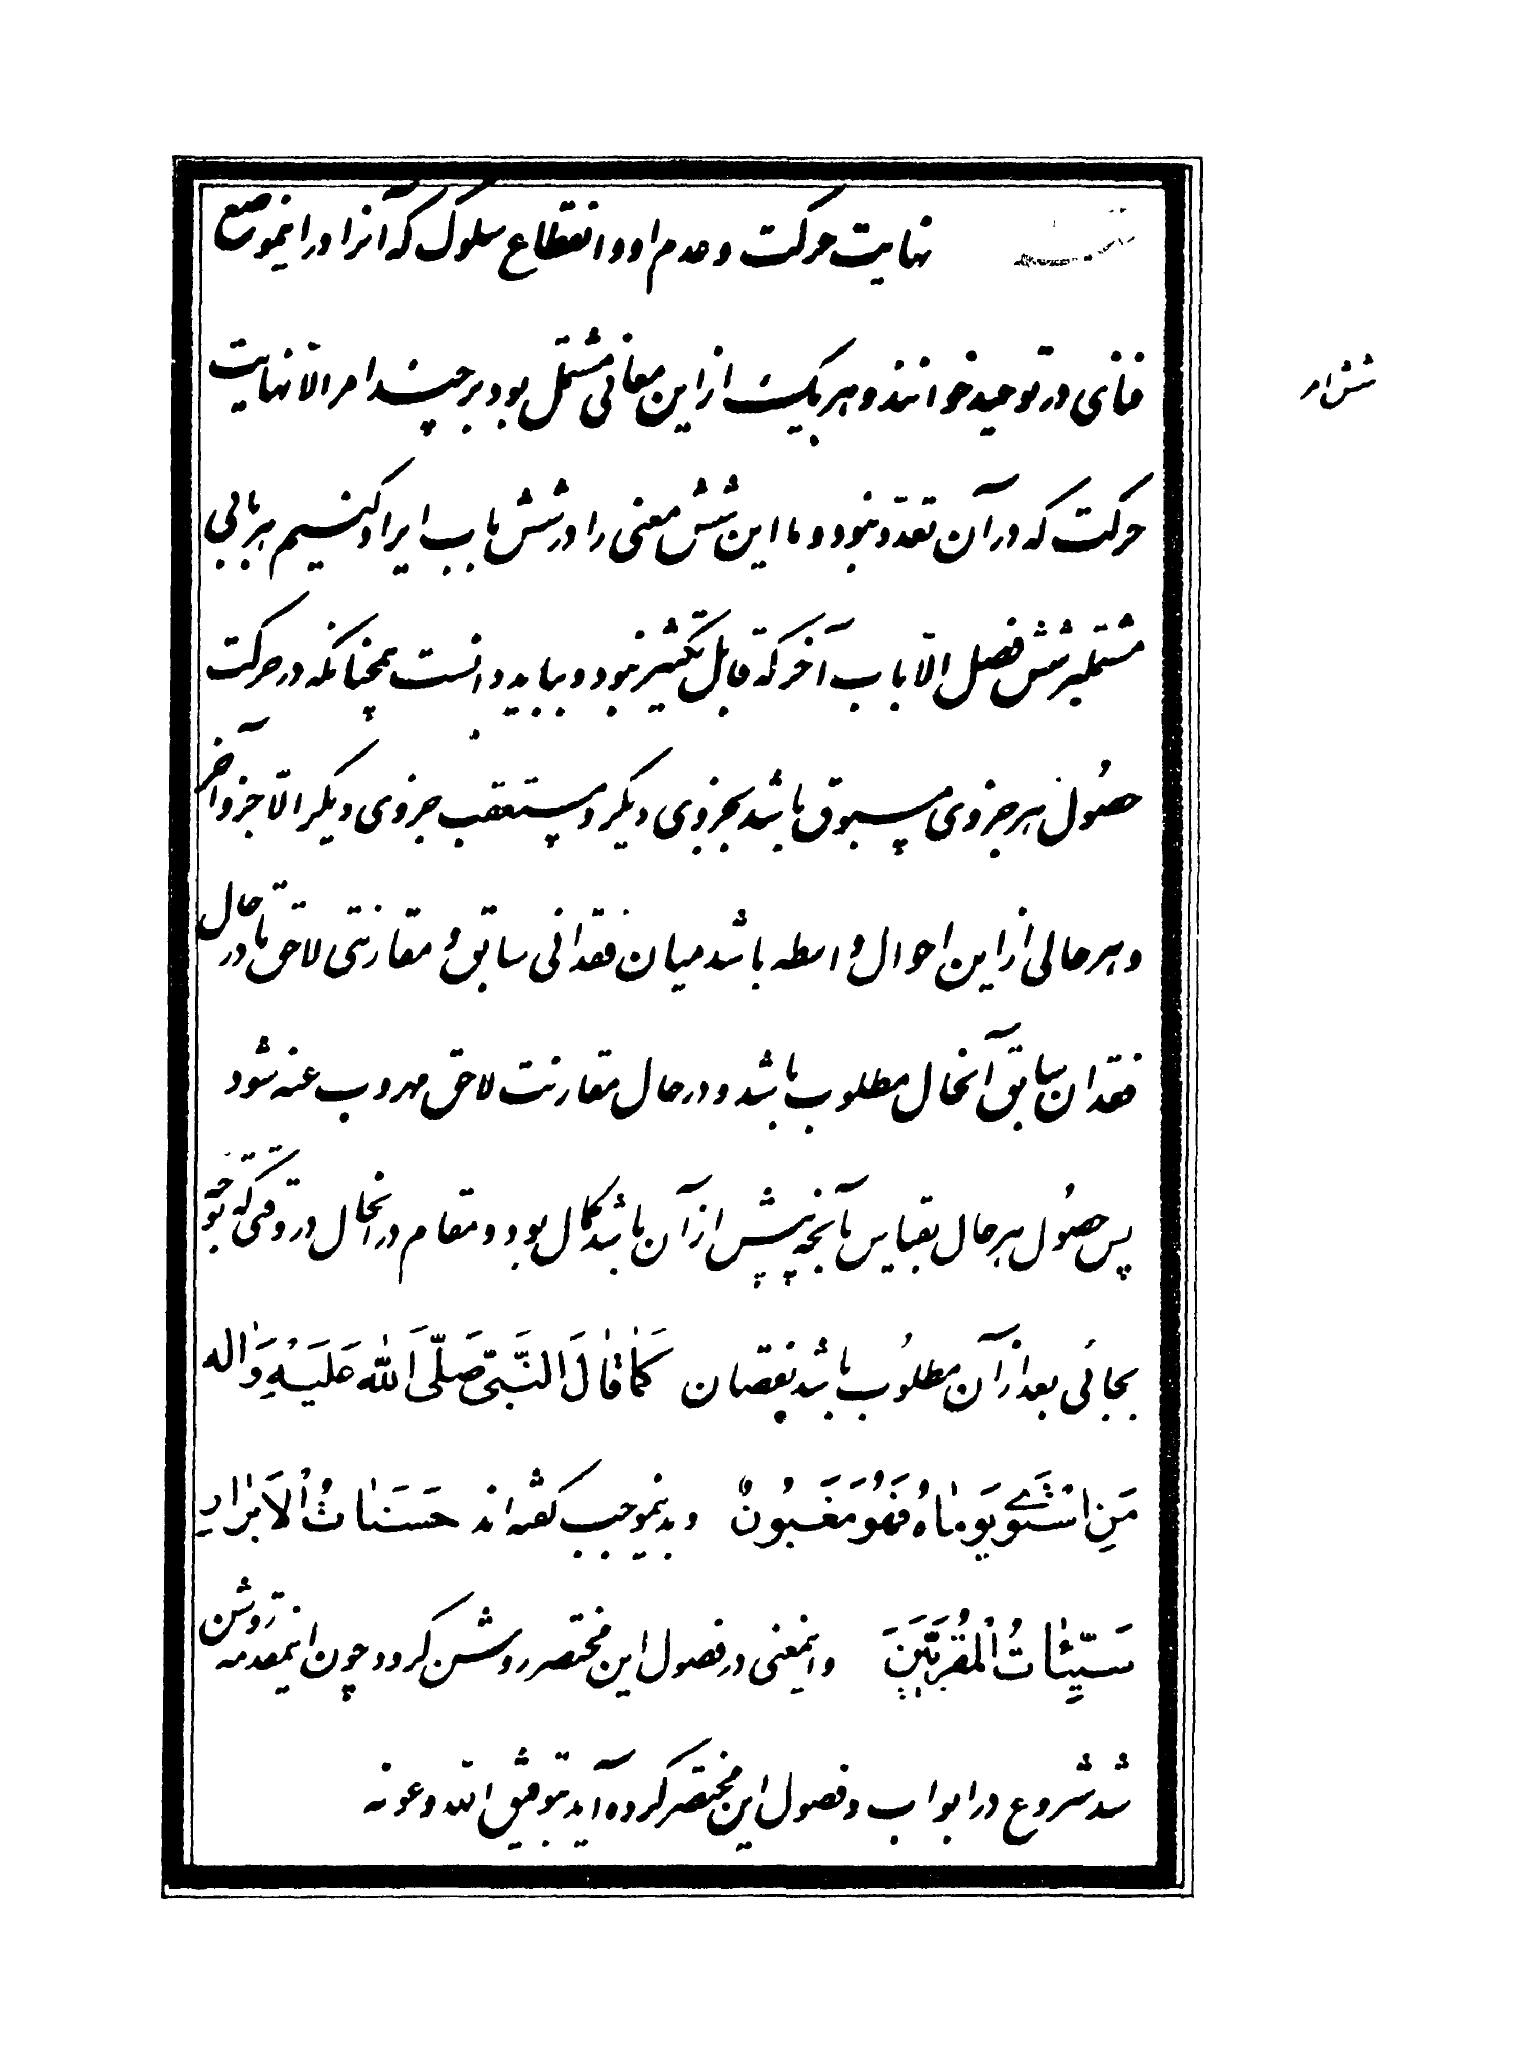 نهایت حرکت و عدم او و انقطاع سلوک که آنرا در اینموضع
فنای در توحید خوانند و هر یک از این معانی مشتمل بود بر چند امر الّا نهایت
شش امر
حرکت که در آن تعدّد نبود و ما این شش معنی را در شش باب ایراد کنیم هر بابی
مشتملبر شش فصل الّا باب آخر که قابل تکثیر نبود و بباید دانست همچنانکه در حرکت
حصُول هر جزوی مسبوق باشد بجزوی دیگر و مستعقب جزوی دیگر الّا جزو آخر
و هر حالی از این احوال واسطه باشد میان فقدانی سابق و مقارنتی لاحق تا در حال
فقدان سابق آنحال مطلوب باشد و در حال مقارنت لاحق مهروب عنه شود
پس حصُول هر حال بقیاس با آنچه پیش از آن باشد کمال بود و مقام در انحال در وقتی که توجّه
بجائی بعد از آن مطلُوب باشد نقصان کَمٰا قٰالَ النَّبیّ صَلَّی اَللّٰه عَلَیْهِ وَاٰله
مَنِ اسْتَوٰی یَوْمٰاهُ فَهُوَ مَغْبُونٌ و بدینموجب گفته اند حَسَنٰاتُ الْاَبْرٰارِ
سَیِّئٰاتُ الْمُقَرَّبٖینَ و اینمعنی در فصول این مختصر روشن گردد چون اینمقدمه روشن
شد شروع در ابواب و فصول این مختصر کرده آید بتوفیق اللّه و عونه